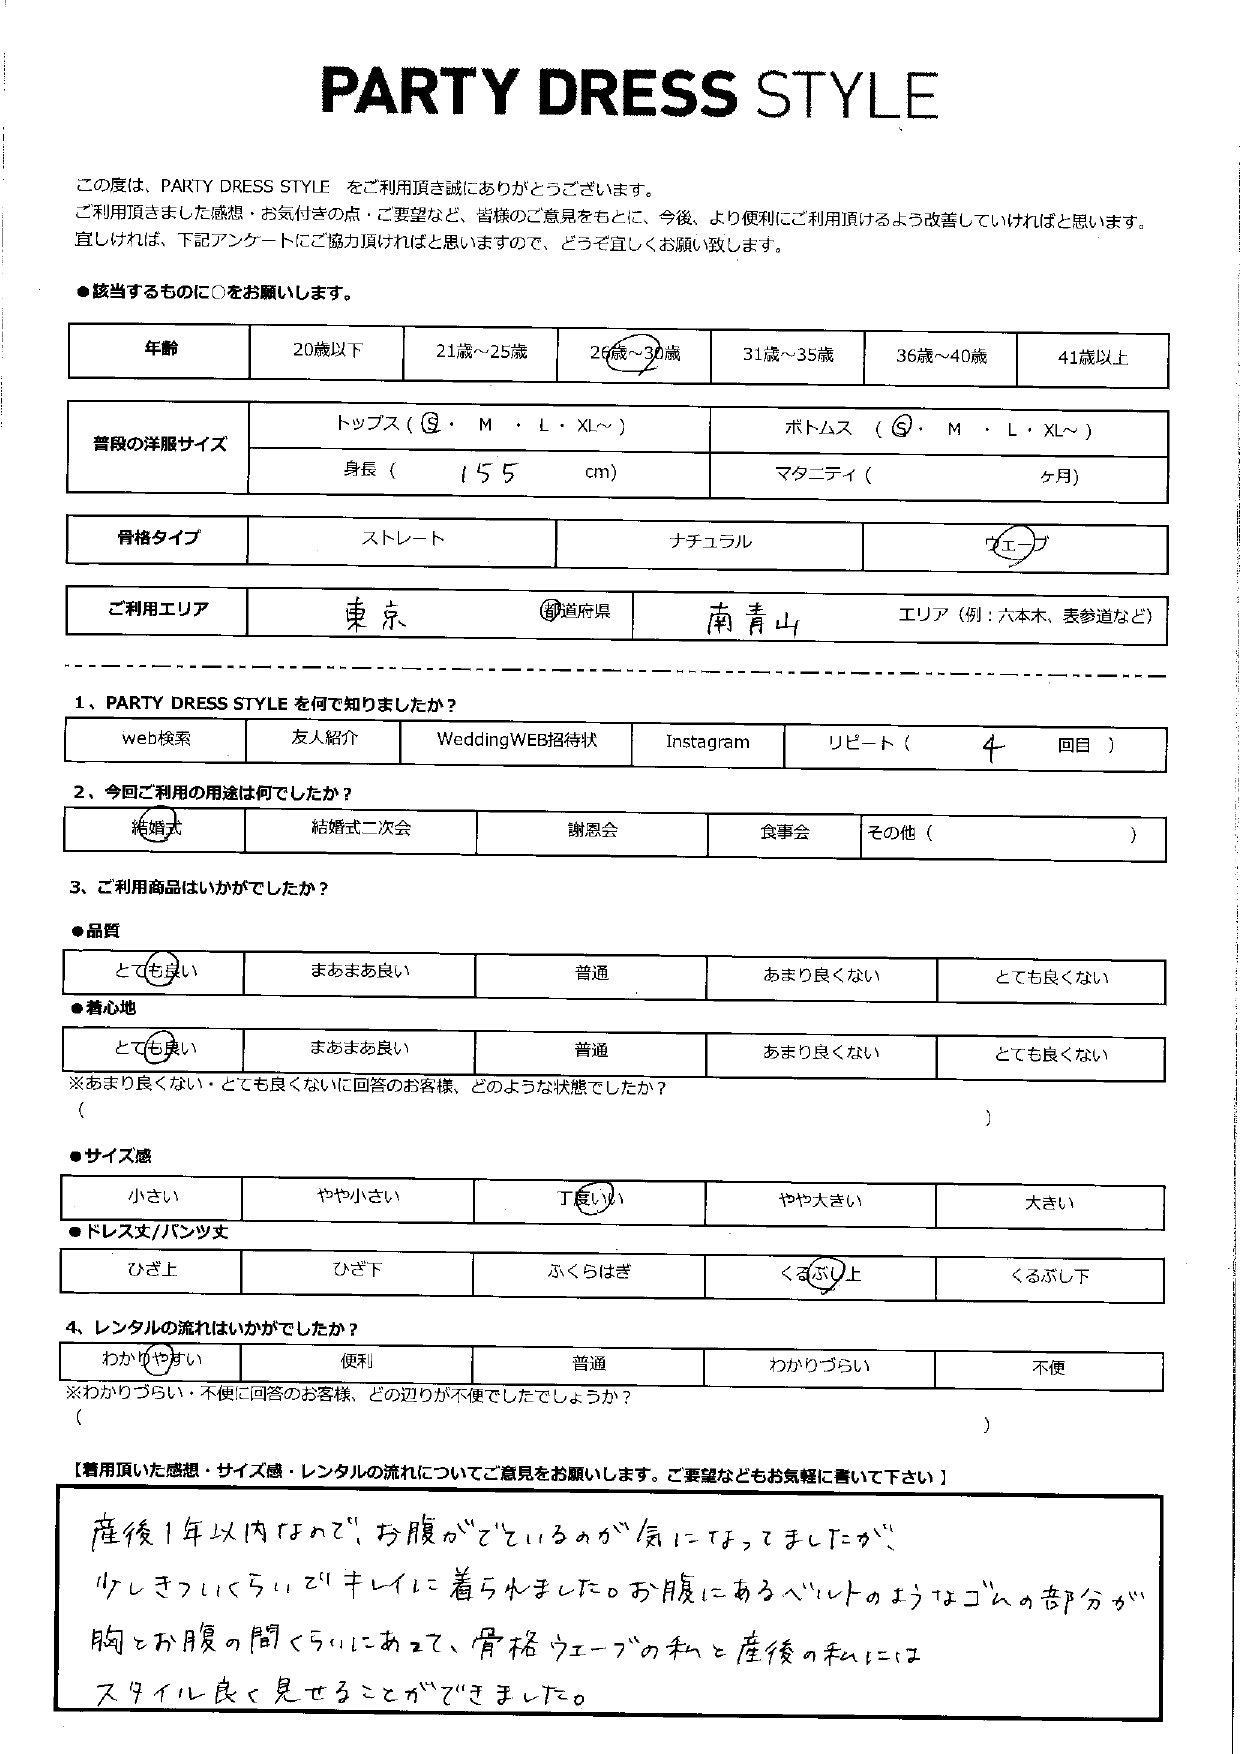 PARTY DRESS STYLE
この度は、PARTY DRESS STYLE をご利用頂き誠にありがとうございます。
ご利用頂きました感想・お気付きの点・ご要望など、皆様のご意見をもとに、今後、より便利にご利用頂けるよう改善していければと思います。
宜しければ、下記アンケートにご協力頂ければと思いますので、どうぞ宜しくお願い致します。
●該当するものに○をお願いします。
年齢 20歳以下 21歳～25歳 26歳～30歳 31歳～35歳 36歳～40歳 41歳以上
普段の洋服サイズ トップス ( S ・ M ・ L ・ XL～ ) ボトムス ( S ・ M ・ L ・ XL～ )
身長 ( 155 cm) マタニティ ( ヶ月)
骨格タイプ ストレート ナチュラル ウェーブ
ご利用エリア 東京 都道府県 南青山 エリア（例：六本木、表参道など）
1、PARTY DRESS STYLE を何で知りましたか？
web検索 友人紹介 WeddingWEB招待状 Instagram リピート ( 4 回目 )
2、今回ご利用の用途は何でしたか？
結婚式 結婚式二次会 謝恩会 食事会 その他 ( )
3、ご利用商品はいかがでしたか？
●品質
とても良い まあまあ良い 普通 あまり良くない とても良くない
●着心地
とても良い まあまあ良い 普通 あまり良くない とても良くない
※あまり良くない・とても良くないに回答のお客様、どのような状態でしたか？
( )
●サイズ感
小さい やや小さい 丁度いい やや大きい 大きい
●ドレス丈/パンツ丈
ひざ上 ひざ下 ふくらはぎ くるぶし上 くるぶし下
4、レンタルの流れはいかがでしたか？
わかりやすい 便利 普通 わかりづらい 不便
※わかりづらい・不便に回答のお客様、どの辺りが不便でしたでしょうか？
( )
【着用頂いた感想・サイズ感・レンタルの流れについてご意見をお願いします。ご要望などもお気軽に書いて下さい】
産後1年以内なので、お腹がでているのが気になってましたが、
少しきついくらいでキレイに着られました。お腹にあるベルトのようなゴムの部分が
胸とお腹の間くらいにあって、骨格ウェーブの私と産後の私には
スタイル良く見せることができました。